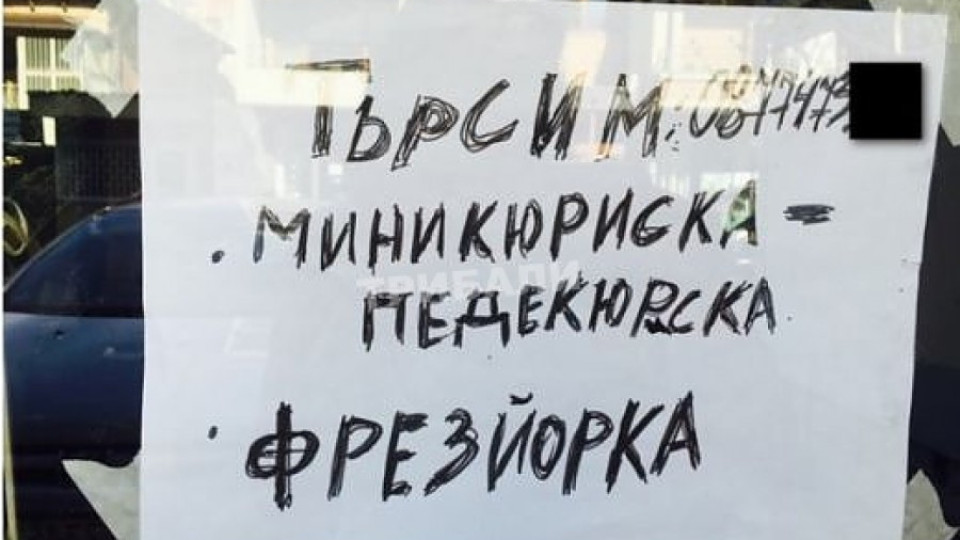 ТЪРСИМ:
• МИНИКЮРИСКА -
ПЕДЕКЮРСКА
• ФРЕЗЙОРКА
ТРИБАДИ